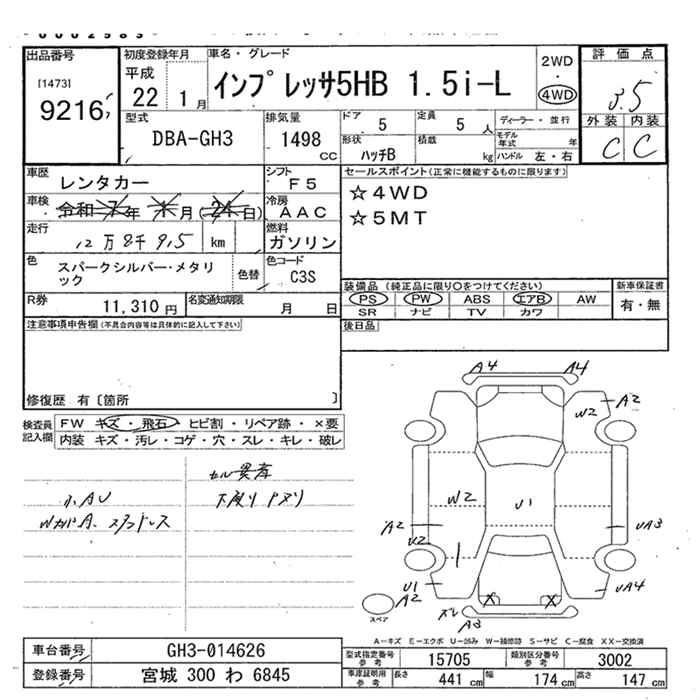 出品番号
[1473]
9216
初度登録年月
平成
22 1月
車名・グレード
インプレッサ5HB 1.5i-L
2WD
・
4WD
評価点
3.5
外装 内装
C C
型式
DBA-GH3
排気量
1498
cc
ドア
5
定員
5 人
ディーラー・並行
モデル年式 年
形状
ハッチB
積載
kg
ハンドル 左・右
車歴
レンタカー
シフト
F5
車検
令和 7年 1月 (24日)
冷房
AAC
走行
12万8千915 km
燃料
ガソリン
色
スパークシルバー・メタリック
色替
色コード
C3S
セールスポイント(正常に機能するものに限ります)
☆4WD
☆5MT
装備品(純正品に限り○をつけてください)
PS PW ABS エアB AW
SR ナビ TV カワ
新車保証書
有・無
R券
11,310 円
名変通知期限
月 日
後日品
注意事項申告欄(不具合内容等は具体的に記入して下さい)
修復歴 有〔箇所 〕
検査員記入欄
FW キズ・飛石・ヒビ割・リペア跡・×要
内装 キズ・汚レ・コゲ・穴・スレ・キレ・破レ
小AU
下廻り
A4 A4
A2
W2
W2
U1
A2
U2
UA3
U1
A2
UA4
X X
スレ
A3
スペア
A-キズ E-エクボ U-凹み W-補修跡 S-サビ C-腐食 XX-交換済
車台番号
GH3-014626
登録番号
宮城 300 わ 6845
型式指定番号 参考
15705
類別区分番号 参考
3002
車庫証明用 参考
長さ 441 cm
幅 174 cm
高さ 147 cm